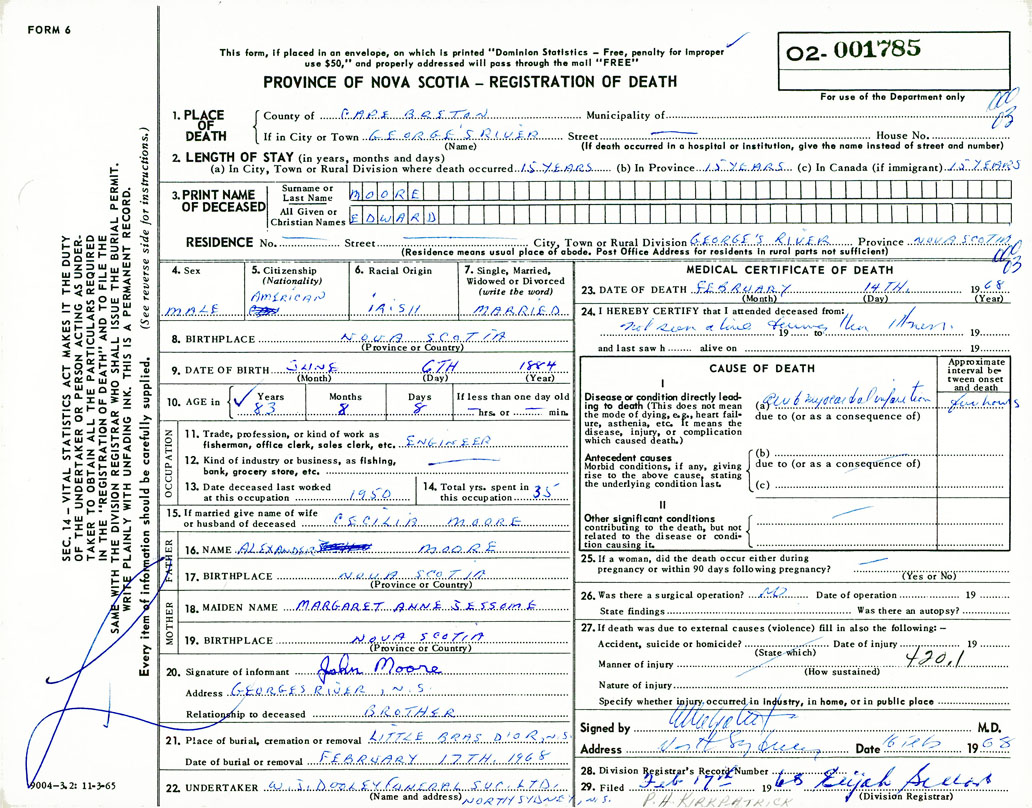 FORM 6
This form, if placed in an envelope, on which is printed "Dominion Statistics – Free, penalty for improper
use $50," and properly addressed will pass through the mail "FREE"
O2- 001785
For use of the Department only
PROVINCE OF NOVA SCOTIA – REGISTRATION OF DEATH
SEC. 14 – VITAL STATISTICS ACT MAKES IT THE DUTY
OF THE UNDERTAKER OR PERSON ACTING AS UNDER-
TAKER TO OBTAIN ALL THE PARTICULARS REQUIRED
IN THE "REGISTRATION OF DEATH" AND TO FILE THE
SAME WITH THE DIVISION REGISTRAR WHO SHALL ISSUE THE BURIAL PERMIT.
WRITE PLAINLY WITH UNFADING INK. THIS IS A PERMANENT RECORD.
Every item of information should be carefully supplied. (See reverse side for instructions.)
1. PLACE OF DEATH
County of CAPE BRETON Municipality of
If in City or Town GEORGE'S RIVER Street House No.
(Name) (If death occurred in a hospital or institution, give the name instead of street and number)
03
2. LENGTH OF STAY (in years, months and days)
(a) In City, Town or Rural Division where death occurred 15 YEARS (b) In Province 15 YEARS (c) In Canada (if immigrant) 15 YEARS
3. PRINT NAME OF DECEASED
Surname or Last Name MOORE
All Given or Christian Names EDWARD
RESIDENCE No. Street City, Town or Rural Division GEORGE'S RIVER Province NOVA SCOTIA
(Residence means usual place of abode. Post Office Address for residents in rural parts not sufficient)
03
4. Sex MALE
5. Citizenship (Nationality) AMERICAN
6. Racial Origin IRISH
7. Single, Married, Widowed or Divorced (write the word) MARRIED
8. BIRTHPLACE NOVA SCOTIA
(Province or Country)
9. DATE OF BIRTH JUNE 6TH 1884
(Month) (Day) (Year)
10. AGE in Years 83 Months 8 Days 8 If less than one day old hrs. or min.
OCCUPATION
11. Trade, profession, or kind of work as
fisherman, office clerk, sales clerk, etc. ENGINEER
12. Kind of industry or business, as fishing,
bank, grocery store, etc.
13. Date deceased last worked
at this occupation 1950
14. Total yrs. spent in
this occupation 35
15. If married give name of wife
or husband of deceased CECILIA MOORE
FATHER
16. NAME ALEXANDER MOORE
17. BIRTHPLACE NOVA SCOTIA
(Province or Country)
MOTHER
18. MAIDEN NAME MARGARET ANNE JESSOME
19. BIRTHPLACE NOVA SCOTIA
(Province or Country)
20. Signature of informant John Moore
Address GEORGES RIVER, N.S.
Relationship to deceased BROTHER
21. Place of burial, cremation or removal LITTLE BRAS D'OR, N.S.
Date of burial or removal FEBRUARY 17TH, 1968
22. UNDERTAKER W.J. DOOLEY FUNERAL SVC LTD.
(Name and address) NORTH SYDNEY, N.S.
9004-3.2: 11-3-65
MEDICAL CERTIFICATE OF DEATH
23. DATE OF DEATH FEBRUARY 14TH. 1968
(Month) (Day) (Year)
24. I HEREBY CERTIFY that I attended deceased from:
Not seen alive during this illness.
19 to 19
and last saw h alive on 19
CAUSE OF DEATH
Approximate interval between onset and death
I
Disease or condition directly lead-
ing to death (This does not
mean the mode of dying, e.g., heart fail-
ure, asthenia, etc. It means the
disease, injury, or complication
which caused death.)
(a) myocardial infarction few hours
due to (or as a consequence of)
Antecedent causes
Morbid conditions, if any, giving
rise to the above cause, stating
the underlying condition last.
(b)
due to (or as a consequence of)
(c)
II
Other significant conditions
contributing to the death, but not
related to the disease or condi-
tion causing it.
25. If a woman, did the death occur either during
pregnancy or within 90 days following pregnancy?
(Yes or No)
26. Was there a surgical operation? NO Date of operation 19
State findings Was there an autopsy?
27. If death was due to external causes (violence) fill in also the following: –
Accident, suicide or homicide? Date of injury 19
(State which)
Manner of injury 420.1
(How sustained)
Nature of injury
Specify whether injury occurred in industry, in home, or in public place
Signed by M.D.
Address North Sydney Date 16 Feb 1968
28. Division Registrar's Record Number
29. Filed Feb 17th 1968
(Division Registrar)
P.A. KIRKPATRICK